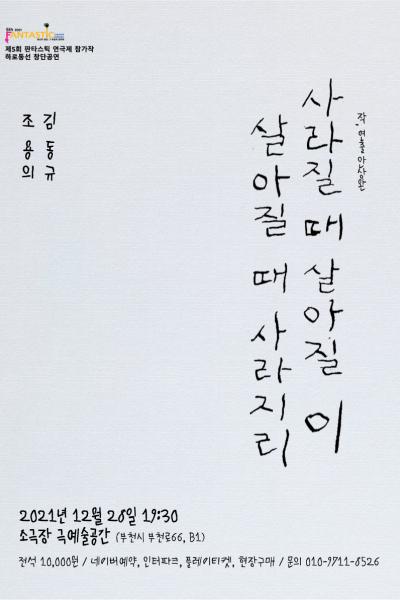 FANTASTIC
제5회 판타스틱 연극제 참가작
하로동선 창단공연
작, 연출 이상완
사라질 때 살아질 이
살아질 때 사라지리
김동규
조용의
2021년 12월 28일 19:30
소극장 극예술공간 (부천시 부천로66, B1)
전석 10,000원 / 네이버예약, 인터파크, 플레이티켓, 현장구매 / 문의 010-9711-8526